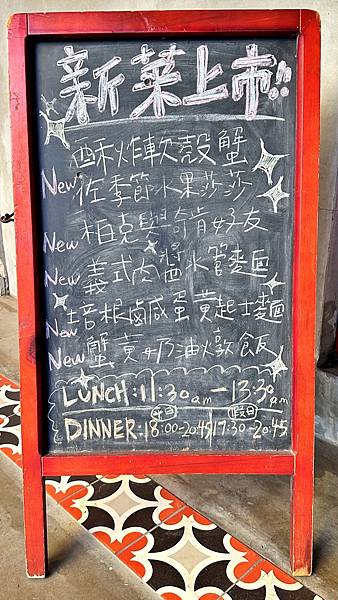 新菜上市!!
酥炸軟殼蟹
New 佐季節水果莎莎
New 柏克與奇肯好友
New 義式肉醬水管麵
New 培根鹹蛋黃起士麵
New 蟹黃奶油燉飯
LUNCH:11:30a.m.-13:30a.m
平日 假日
DINNER:18:00-20:45 17:30-20:45